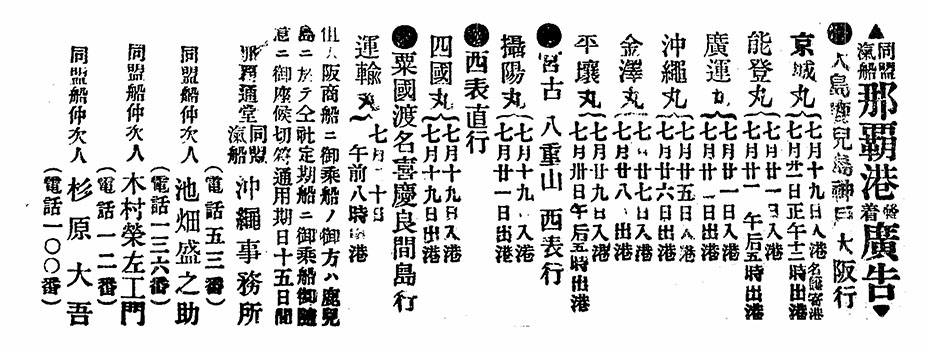 ▲同盟汽船那覇港發着廣告▼
●大島鹿兒島神戸大阪行
京城丸 七月十九日入港 名瀬寄港
七月廿一日正午十二時出港
能登丸 七月廿一
七月廿一 午后五時出港
廣運丸 七月廿一日入港
七月廿一日出港
沖繩丸 七月廿五日入港
七月廿六日出港
金澤丸 七月廿七日入港
七月廿八 出港
平壤丸 七月廿九日入港
七月卅日午后五時出港
●宮古 八重山 西表行
攝陽丸 七月十九 入港
七月廿一日出港
●西表直行
四國丸 七月十九日入港
七月十九日出港
●粟國渡名喜慶良間島行
運輸丸 七月二十日
午前八時 港
但大阪商船ニ御乘船ノ御方ハ鹿兒
島ニ於テ仝社定期船ニ御乘船御隨
意ニ御座候切符通用期日十五日間
那覇通堂 同盟汽船 沖繩事務所
(電話五三番)
同盟船仲次人 池畑盛之助
(電話一三六番)
同盟船仲次人 木村榮左工門
(電話一二番)
同盟船仲次人 杉原大吾
(電話一〇〇番)